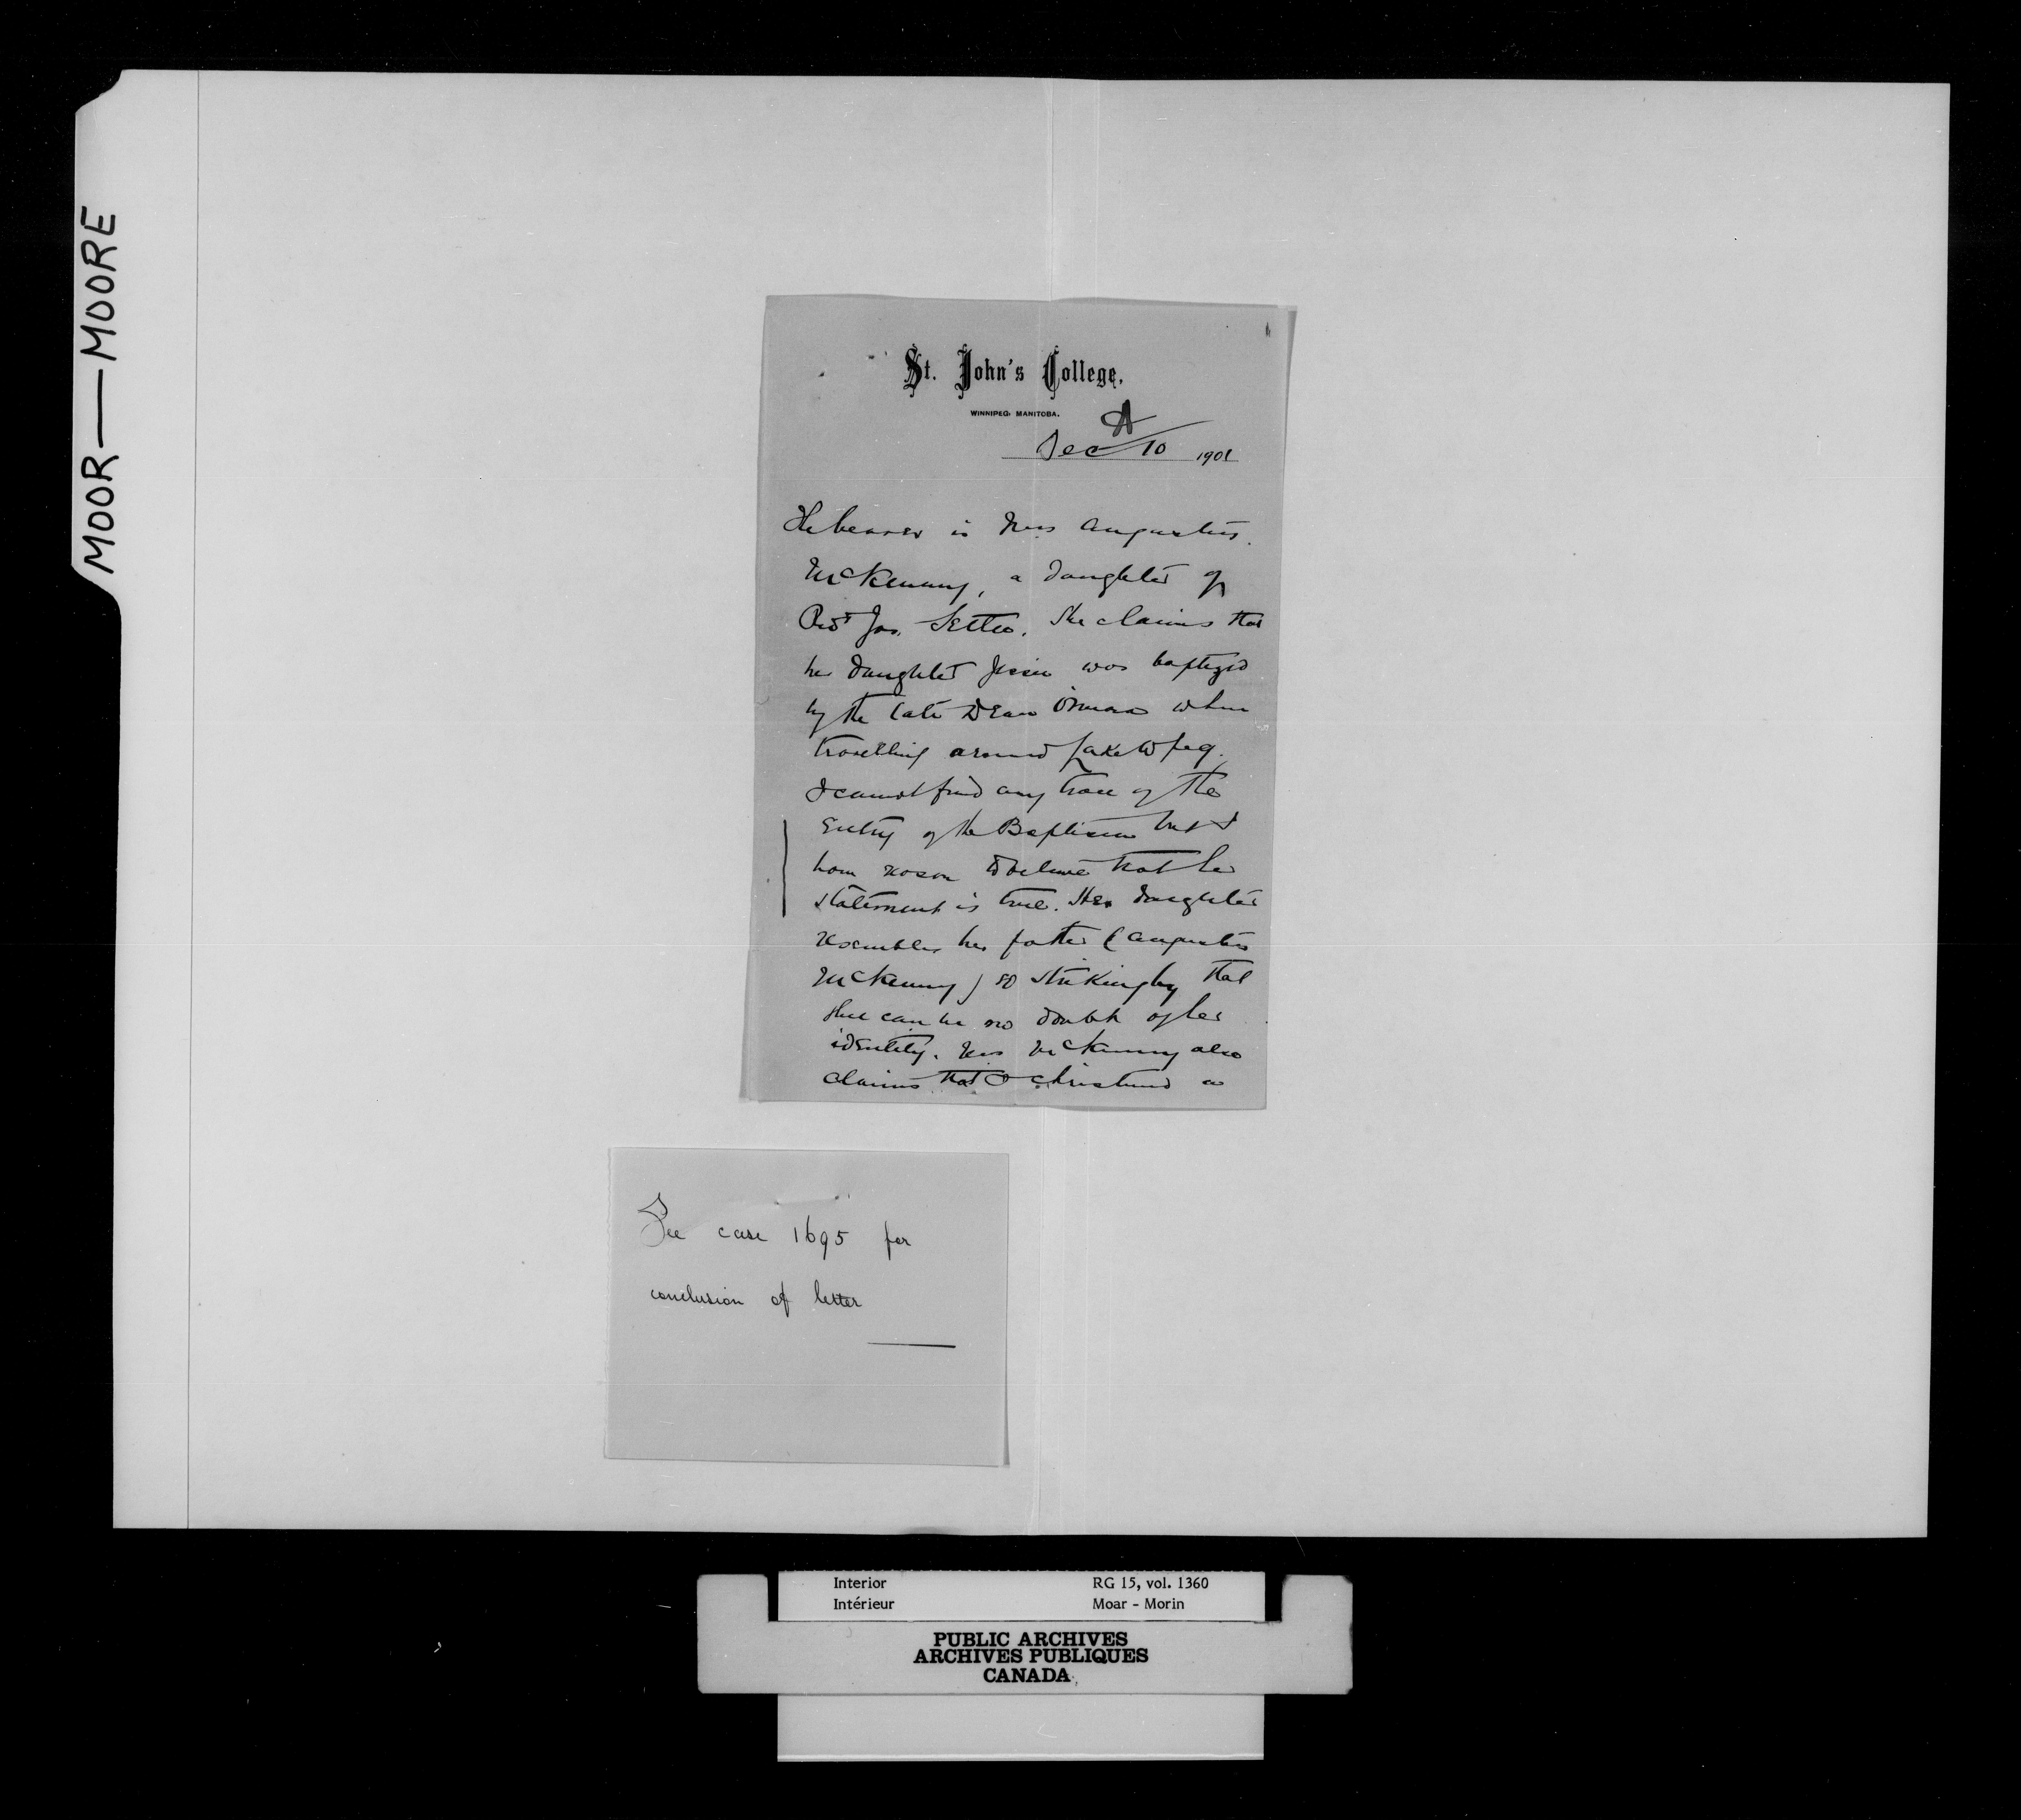 MOOR—MOORE
St. John's College,
WINNIPEG, MANITOBA.
A
Dec 10 1901
The bearer is Mrs Augustus
McKenny, a daughter of
Revd Jas. Settee. She claims that
her daughter Jessie was baptized
by the late Dean when
travelling around Lake Wpeg.
I cannot find any trace of the
Entry of the Baptism but I
have reason to believe that her
statement is true. Her daughter
resembles her father (Augustus
McKenny) so strikingly that
there can be no doubt of her
identity. Mrs McKenny also
claims that I christened a
See case 1695 for
conclusion of letter
Interior RG 15, vol. 1360
Intérieur Moar - Morin
PUBLIC ARCHIVES
ARCHIVES PUBLIQUES
CANADA